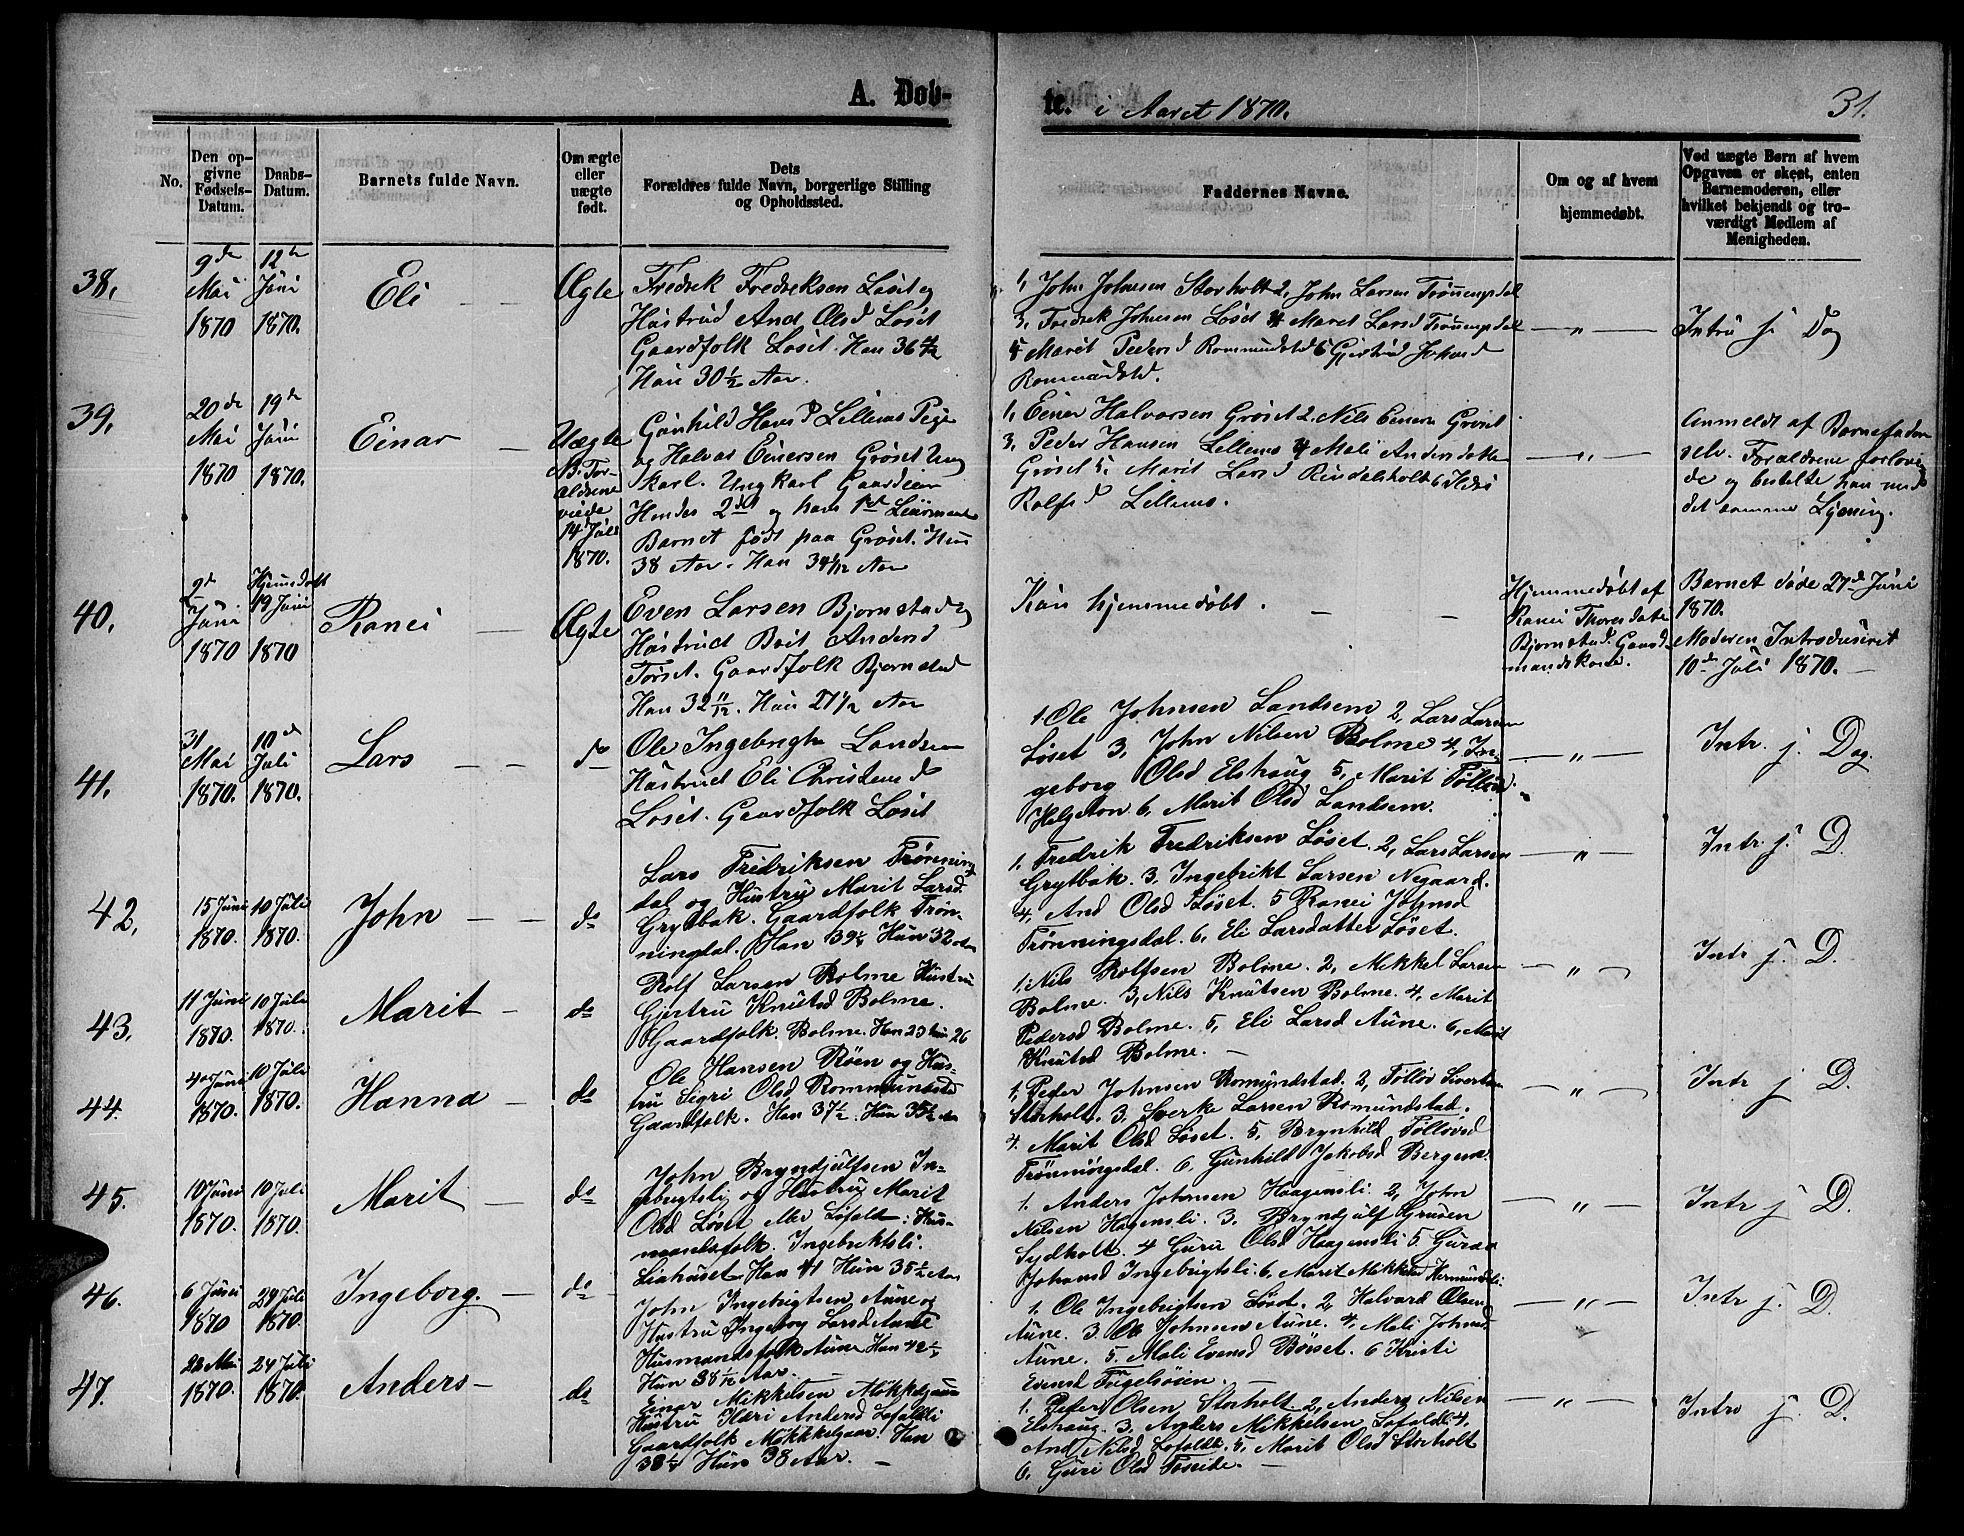 A. Døb-
te. i Aaret 1870.
31.
No.
Den op-
givne
Fødsels-
Datum.
Daabs-
Datum.
Barnets fulde Navn.
Om ægte
eller
uægte
født.
Dets
Forældres fulde Navn, borgerlige Stilling
og Opholdssted.
Faddernes Navne.
Om og af hvem
hjemmedøbt.
Ved uægte Børn af hvem
Opgaven er skeet, enten
Barnemoderen, eller
hvilket bekjendt og tro-
værdigt Medlem af
Menigheden.
38.
9de
Mai
1870
12te
Juni
1870.
Eli
Ægte
Fredrek Fredreksen Løset og
Hustrud And Olsd Løset
Gaardfolk Løset. Han 36
Hun 30 1/2 Aar.
1, John Johnsen Storholt 2, John Larsen
3, Fredrek Johnsen Løset 4 Maret Larsd
5 Marit Pedersd Rommundstd 6 Gjertrud Johnsd
Rommundstd.
Intru j Dag
39,
20de
Mai
1870
19de
Juni
1870.
Einar
Uægte
Forældrene
viede
14 Juli
1870.
Gunhild Hansd Lillemo Pige
og Halvar Einersen Grøset Ung
karl. Ungkarl Gaardeier
Hendes 2det og hans 1ste Leiermaal
Barnet født paa Grøset. Hun
38 Aar. Han 34 Aar
1, Einer Halvorsen Grøset 2. Nils Einersn Grøset
3, Peder Hansen Lillemo 4 Mali Andersdatter
Grøset 5, Marit Larsd Rindalsholt 6
Rolfsd Lillemo.
Anmeldt af Barnefaderen
selv. Forældrene forlove
de og bestilte han med
det samme Lysning.
40,
9de
Juni
1870
Hjemmedøbt
19 Juni
1870
Ranei
Ægte
Even Larsen Bjørnstad og
Hustrud Brit Andersd
Tørset. Gaardfolk Bjørnstad
Han 32 11/12. Hun 27 1/2 Aar
Kun hjemmedøbt.
Hjemmedøbt af
Ranei Thoresdatter
Bjørnstad. Gaard-
mandskone.
Barnet døde 27de Juni
1870.
Moderen Introduseret
10de Juli 1870.
41,
31
Mai
1870.
10de
Juli
1870.
Lars
Ole Ingebrigtn Landsem
Hustrud Eli Christensd
Løset. Gaardfolk Løset
1. Ole Johnsen Landsem 2, Lars Larsen
Løset 3, John Nilsen Bolme 4, In-
geborg Olsd Elshaug 5, Marit
Helgeton. 6, Marit Olsd Landsem.
Intr. j. Dag.
42,
15 Juni
1870.
10 Juli
1870.
John
do
Lars Fridriksen Trønning
dal og Hustru Marit Larsd.
Grytbak. Gaardfolk Trøn-
ningdal. Han 39 Hun 32
1, Fredrik Fredriksen Løset. 2, Lars Larsen
Grytbak. 3. Ingebrikt Larsen Negaard.
4, And Olsd Løset. 5 Ranei Johnsd
Trønningsdal. 6, Eli Larsdatter Løset.
Intr. j. D.
43,
11 Juni
1870.
10 Juli
1870.
Marit
do
Rolf Larsen Bolme Hustru
Gjertru Knutsd Bolme.
Gaardfolk. Bolme. Han 23 Hun 26
1. Nils Rolfsen Bolme. 2, Mikkel Larsen
Bolme. 3, Nils Knutsen Bolme. 4, Marit
Pedersd Bolme. 5, Eli Larsd Aune. 6, Marit
Knutsd Bolme.
Intr j. D.
44.
4 Juni
1870.
10 Juli
1870.
Hanna
do
Ole Hansen Røen og Hus-
tru Sigri Olsd Rommundstd
Gaardfolk. Han 37 1/2. Hun 35 1/2
1, Peder Johnsen Romundstad. 2, Tølløv Sivertsen
Storholt. 3. Sverke Larsen Romundstad.
4. Marit Olsd Løset. 5, Brynhild Tølløvsd
Trønningsdal. 6. Gunhild Jakobsd
Intr j D.
45.
10 Juni
1870.
10 Juli
1870.
Marit
do
John Bryndjulfsen In-
gebrigtsli og Hustru Marit
Olsd Løset : Hus-
mandsfolk. Ingebriktsli.
Liahuset Han 41 Hun 35 1/2 Aar
1. Anders Johnsen Haagensli. 2, John
Nilsen Hagensli. 3. Bryndjulf
Sydholt. 4 Guru Olsd Haagensli 5. Guru
Johansd Ingebrigtsli. 6, Marit Mikkelsd
Intr j D.
46.
6 Juni
1870
24 Juli
1870.
Ingeborg.
do
John Ingebrigtsen Aune og
Hustru Ingebog Larsd Aune
Husmandsfolk Aune Han 42
Hun 38 1/2 Aar.
1. Ole Ingebrigtsen Løset. 2, Halvard Olsen
Aune. 3. Ole Johnsen Aune. 4, Mali Johnsd
Aune. 5. Mali Evensd Børset. 6 Kristi
Evensd
Intr j. D.
47.
22 Mai
1870.
24 Juli
1870.
Anders
do
Einar Mikkelsen
Hustru Ildri Andersd Lofaldli
Gaardfolk Møkkelgaar. Han
38 Hun 38 Aar.
1. Peder Olsen Storholt. 2, Anders Nilsen
Elshaug. 3, Anders Mikkelsen Lofaldli. 4,
And Nilsd Lofaldli. 5, Marit Olsd Storholt
6, Guri Olsd
Intro j. D.